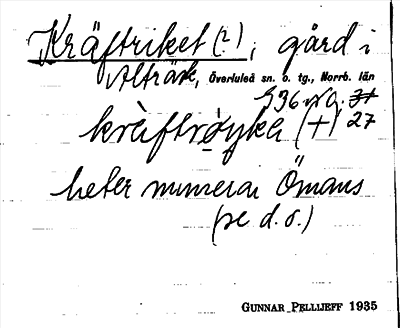 Kräftriket (?), gård i
Alträsk, Överluleå sn. o. tg., Norrb. län
936 N.Q. 31
kràftrøyka (+) 27
heter numera Ömans
(se d. o.)
GUNNAR PELLIJEFF 1935